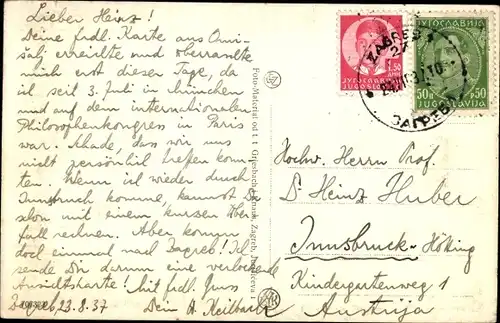 Lieber Heinz!
Deine frdl. Karte aus Omi-
šalj erreichte und überraschte
mich erst dieser Tage, da
ich seit 3. Juli in München
und auf dem internationalen
Philosophenkongress in Paris
war. Schade, dass wir uns
nicht persönlich treffen konn-
ten. Wenn ich wieder durch
Innsbruck komme, kannst Du
schon mit einem kurzen Über-
fall rechnen. Aber komm
doch einmal nach Zagreb! Ich
sende Dir darum eine verlockende
Ansichtskarte! Mit frdl. Gruss
Zagreb 23.8.37 Dein A. Keilbach
Foto-Material od t. t. Griesbach i Knaus, Zagreb,
ЈУГОСЛАВИЈА
1.50
JUGOSLAVIJA
ЈУГОСЛАВИЈА
JUGOSLAVIJA
ZAGREB
ЗАГРЕБ
Hochw. Herrn Prof.
Dr. Heinz Huber
Innsbruck-Hötting
Kindergartenweg 1
Austrija